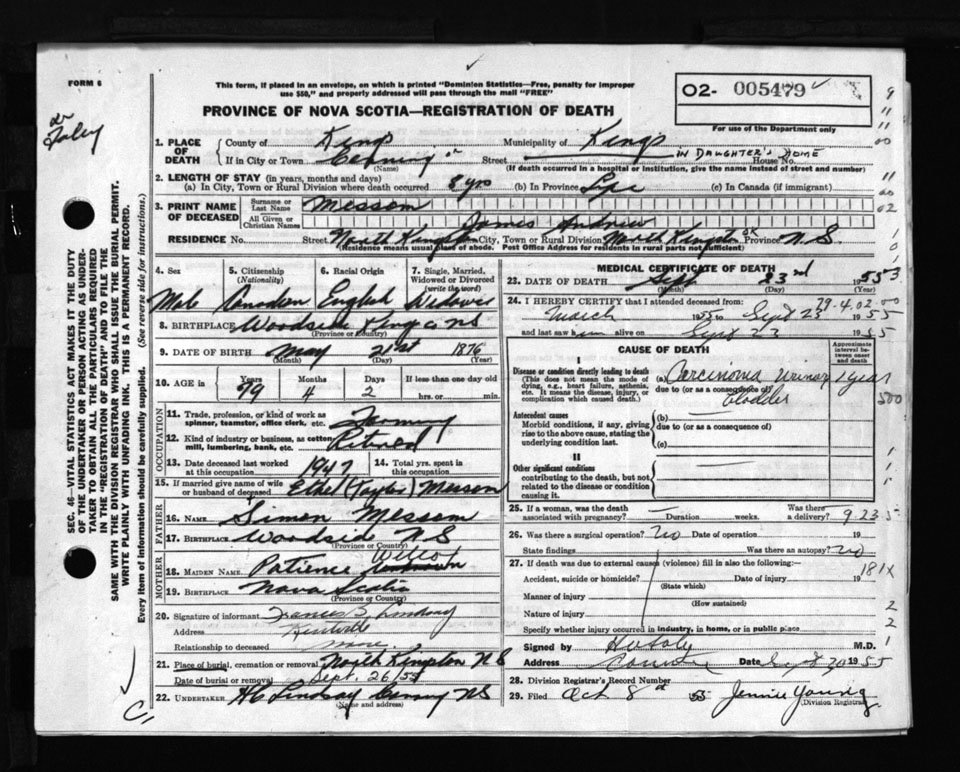 FORM 6
This form, if placed in an envelope, on which is printed "Dominion Statistics—Free, penalty for improper
use $50," and properly addressed will pass through the mail "FREE"
PROVINCE OF NOVA SCOTIA—REGISTRATION OF DEATH
02- 005479
For use of the Department only
Dr Foley
SEC. 46—VITAL STATISTICS ACT MAKES IT THE DUTY
OF THE UNDERTAKER OR PERSON ACTING AS UNDER-
TAKER TO OBTAIN ALL THE PARTICULARS REQUIRED
IN THE "REGISTRATION OF DEATH" AND TO FILE THE
SAME WITH THE DIVISION REGISTRAR WHO SHALL ISSUE THE BURIAL PERMIT.
WRITE PLAINLY WITH UNFADING INK. THIS IS A PERMANENT RECORD.
Every item of information should be carefully supplied. (See reverse side for instructions.)
1. PLACE OF DEATH County of Kings Municipality of Kings
If in City or Town Canning Street IN DAUGHTER'S HOME House No.
(Name) (If death occurred in a hospital or institution, give its name instead of street and number)
2. LENGTH OF STAY (in years, months and days)
(a) In City, Town or Rural Division where death occurred 8 yrs (b) In Province Life (c) In Canada (if immigrant)
3. PRINT NAME OF DECEASED Surname or Last Name Messom
All Given or Christian Names James Andrew
RESIDENCE No. Street North Kingston City, Town or Rural Division North Kingston Province N.S.
(Residence means usual place of abode. Post Office Address for residents in rural parts not sufficient)
4. Sex 5. Citizenship (Nationality) 6. Racial Origin 7. Single, Married, Widowed or Divorced (write the word)
Male Canadian English Widower
8. BIRTHPLACE Woodside Kings Co NS
(Province or Country)
9. DATE OF BIRTH May 21st 1876
(Month) (Day) (Year)
10. AGE in Years Months Days If less than one day old
79 4 2 hrs. or min.
OCCUPATION
11. Trade, profession, or kind of work as spinner, teamster, office clerk, etc. Farming
12. Kind of industry or business, as cotton mill, lumbering, bank, etc. Retired
13. Date deceased last worked at this occupation 1947 14. Total yrs. spent in this occupation
15. If married give name of wife or husband of deceased Ethel (Taylor) Messom
FATHER
16. NAME Simon Messom
17. BIRTHPLACE Woodside N S
(Province or Country)
MOTHER
18. MAIDEN NAME Patience
19. BIRTHPLACE Nova Scotia
(Province or Country)
20. Signature of informant Frances B. Lindsay
Address Kentville
Relationship to deceased
21. Place of burial, cremation or removal North Kingston N S
Date of burial or removal Sept. 26/55
22. UNDERTAKER H C Lindsay Canning NS
(Name and address)
MEDICAL CERTIFICATE OF DEATH
23. DATE OF DEATH Sept 23rd 1955
(Month) (Day)
24. I HEREBY CERTIFY that I attended deceased from:
March 1955 to Sept 23 1955
and last saw him alive on Sept 23 1955
79.4.02.00
CAUSE OF DEATH
Approximate interval between onset and death
I
Disease or condition directly leading to death
(This does not mean the mode of dying, e.g., heart failure, asthenia, etc. It means the disease, injury, or complication which caused death.)
(a) Carcinoma Urinary Bladder 1 year
due to (or as a consequence of)
Antecedent causes
Morbid conditions, if any, giving rise to the above cause, stating the underlying condition last.
(b)
due to (or as a consequence of)
(c)
II
Other significant conditions
contributing to the death, but not related to the disease or condition causing it.
25. If a woman, was the death associated with pregnancy? Duration weeks. Was there a delivery?
923 5
26. Was there a surgical operation? No Date of operation 19
State findings Was there an autopsy? No
27. If death was due to external causes (violence) fill in also the following:—
Accident, suicide or homicide? Date of injury 19
(State which)
181X
Manner of injury
(How sustained)
Nature of injury
Specify whether injury occurred in industry, in home, or in public place
Signed by M.D.
Address Canning Date Sept 30 1955
28. Division Registrar's Record Number
29. Filed Oct 8th 55 Jennie Young
(Division Registrar)